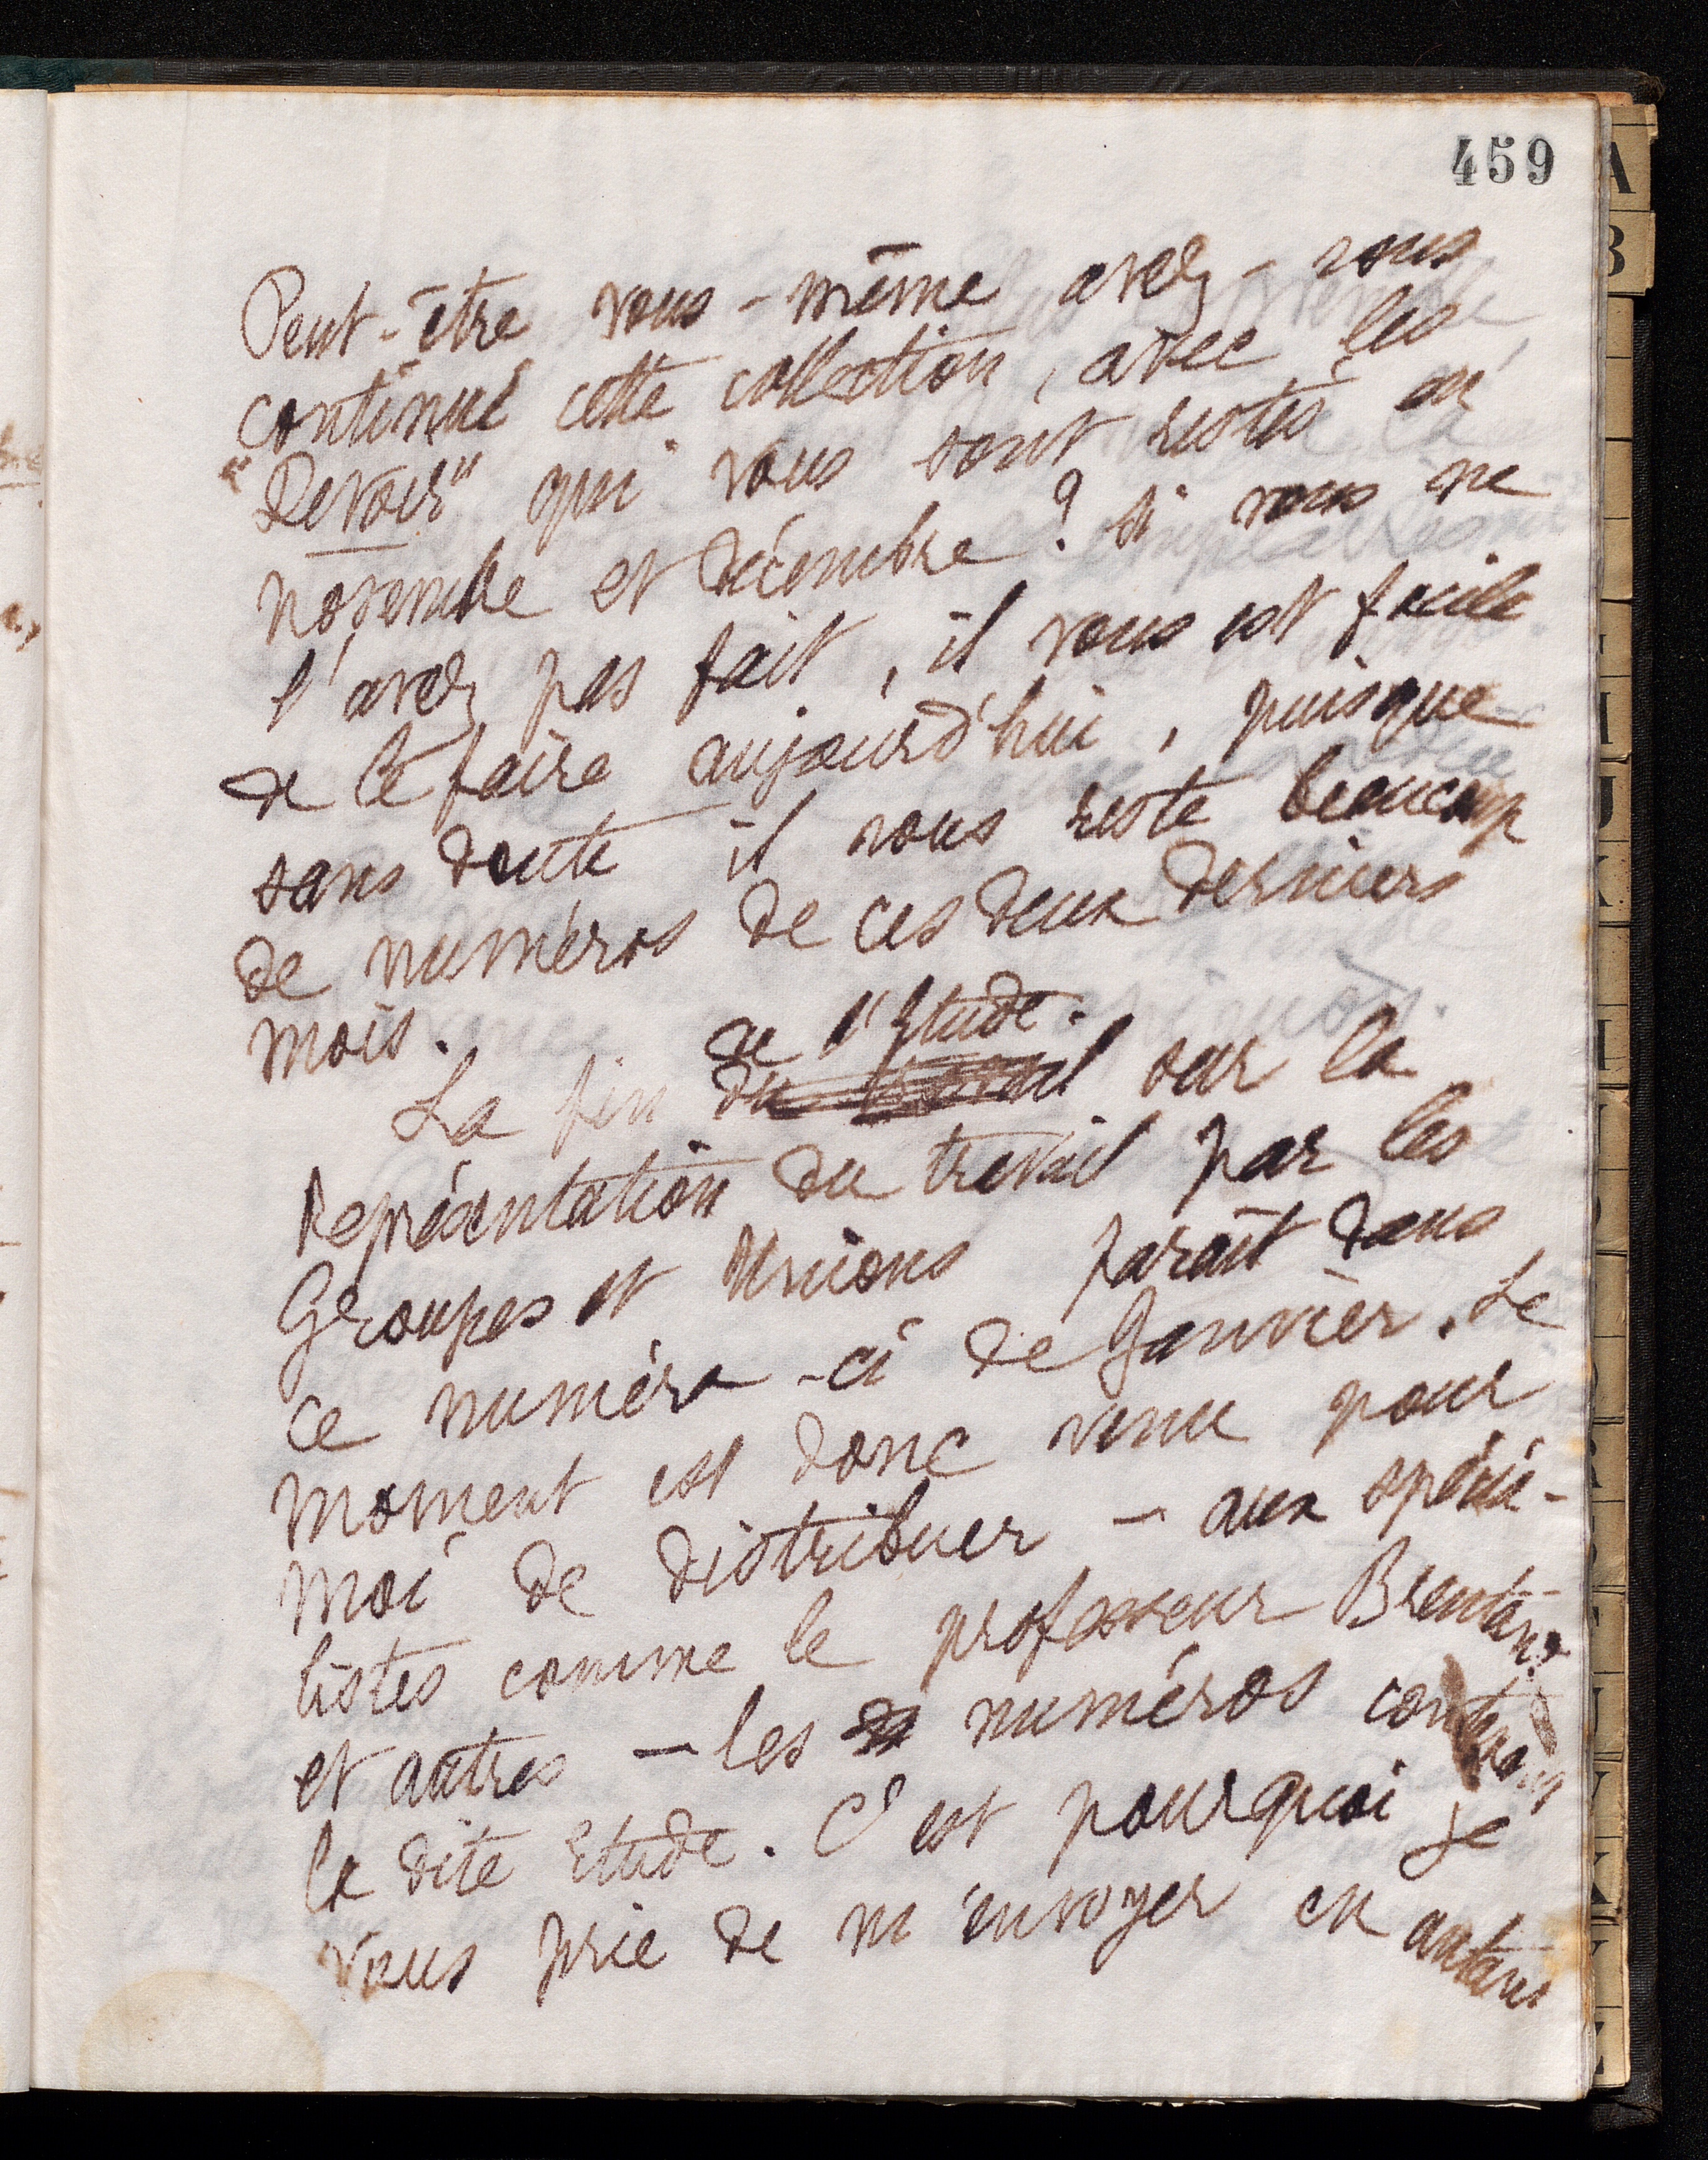 459
Peut-être vous-même avez-vous
continué cette collection, avec les
"Devoir" qui vous sont restés en
novembre et décembre ? Si vous ne
l'avez pas fait, il vous est facile
de le faire aujourd'hui, puisque
sans doute il vous reste beaucoup
de numéros de ces deux derniers
mois.
de l'Etude
La fin du travail sur la
Représentation du travail par les
Groupes et Unions paraît dans
ce numéro-ci de Janvier. Le
moment est donc venu pour
moi de distribuer — aux spécia-
listes comme le professeur Brentano
et autres — les numéros contenant
la dite Etude. C'est pourquoi je
vous prie de m'envoyer en autant